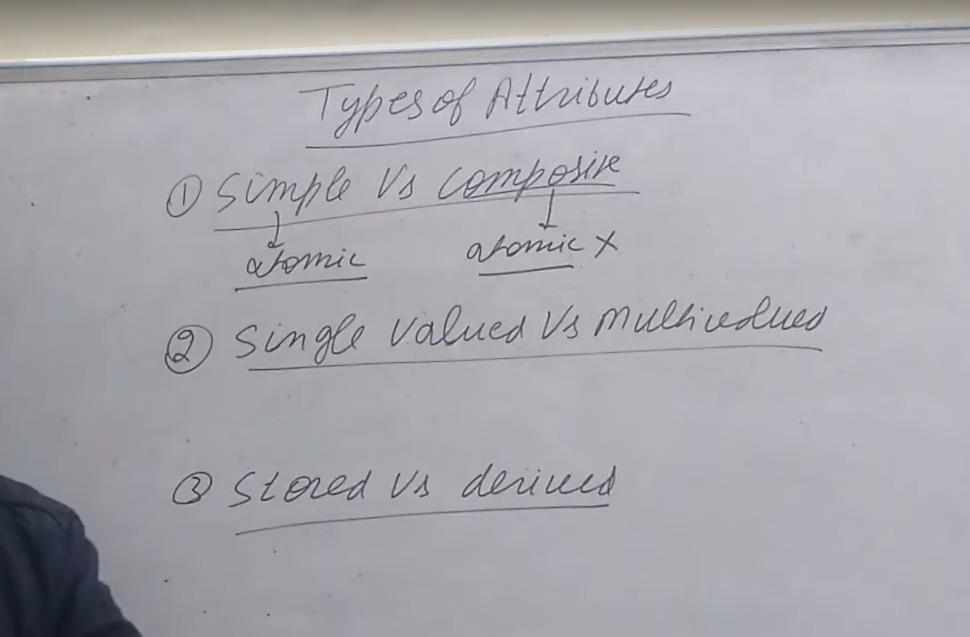 Types of Attributes
① Simple Vs composite
atomic atomic X
② Single valued Vs multivalued
③ Stored Vs derived